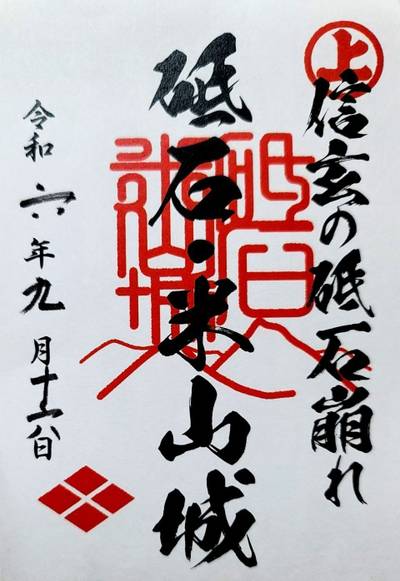 上
信玄の砥石崩れ
砥石・米山城
令和六年九月十六日